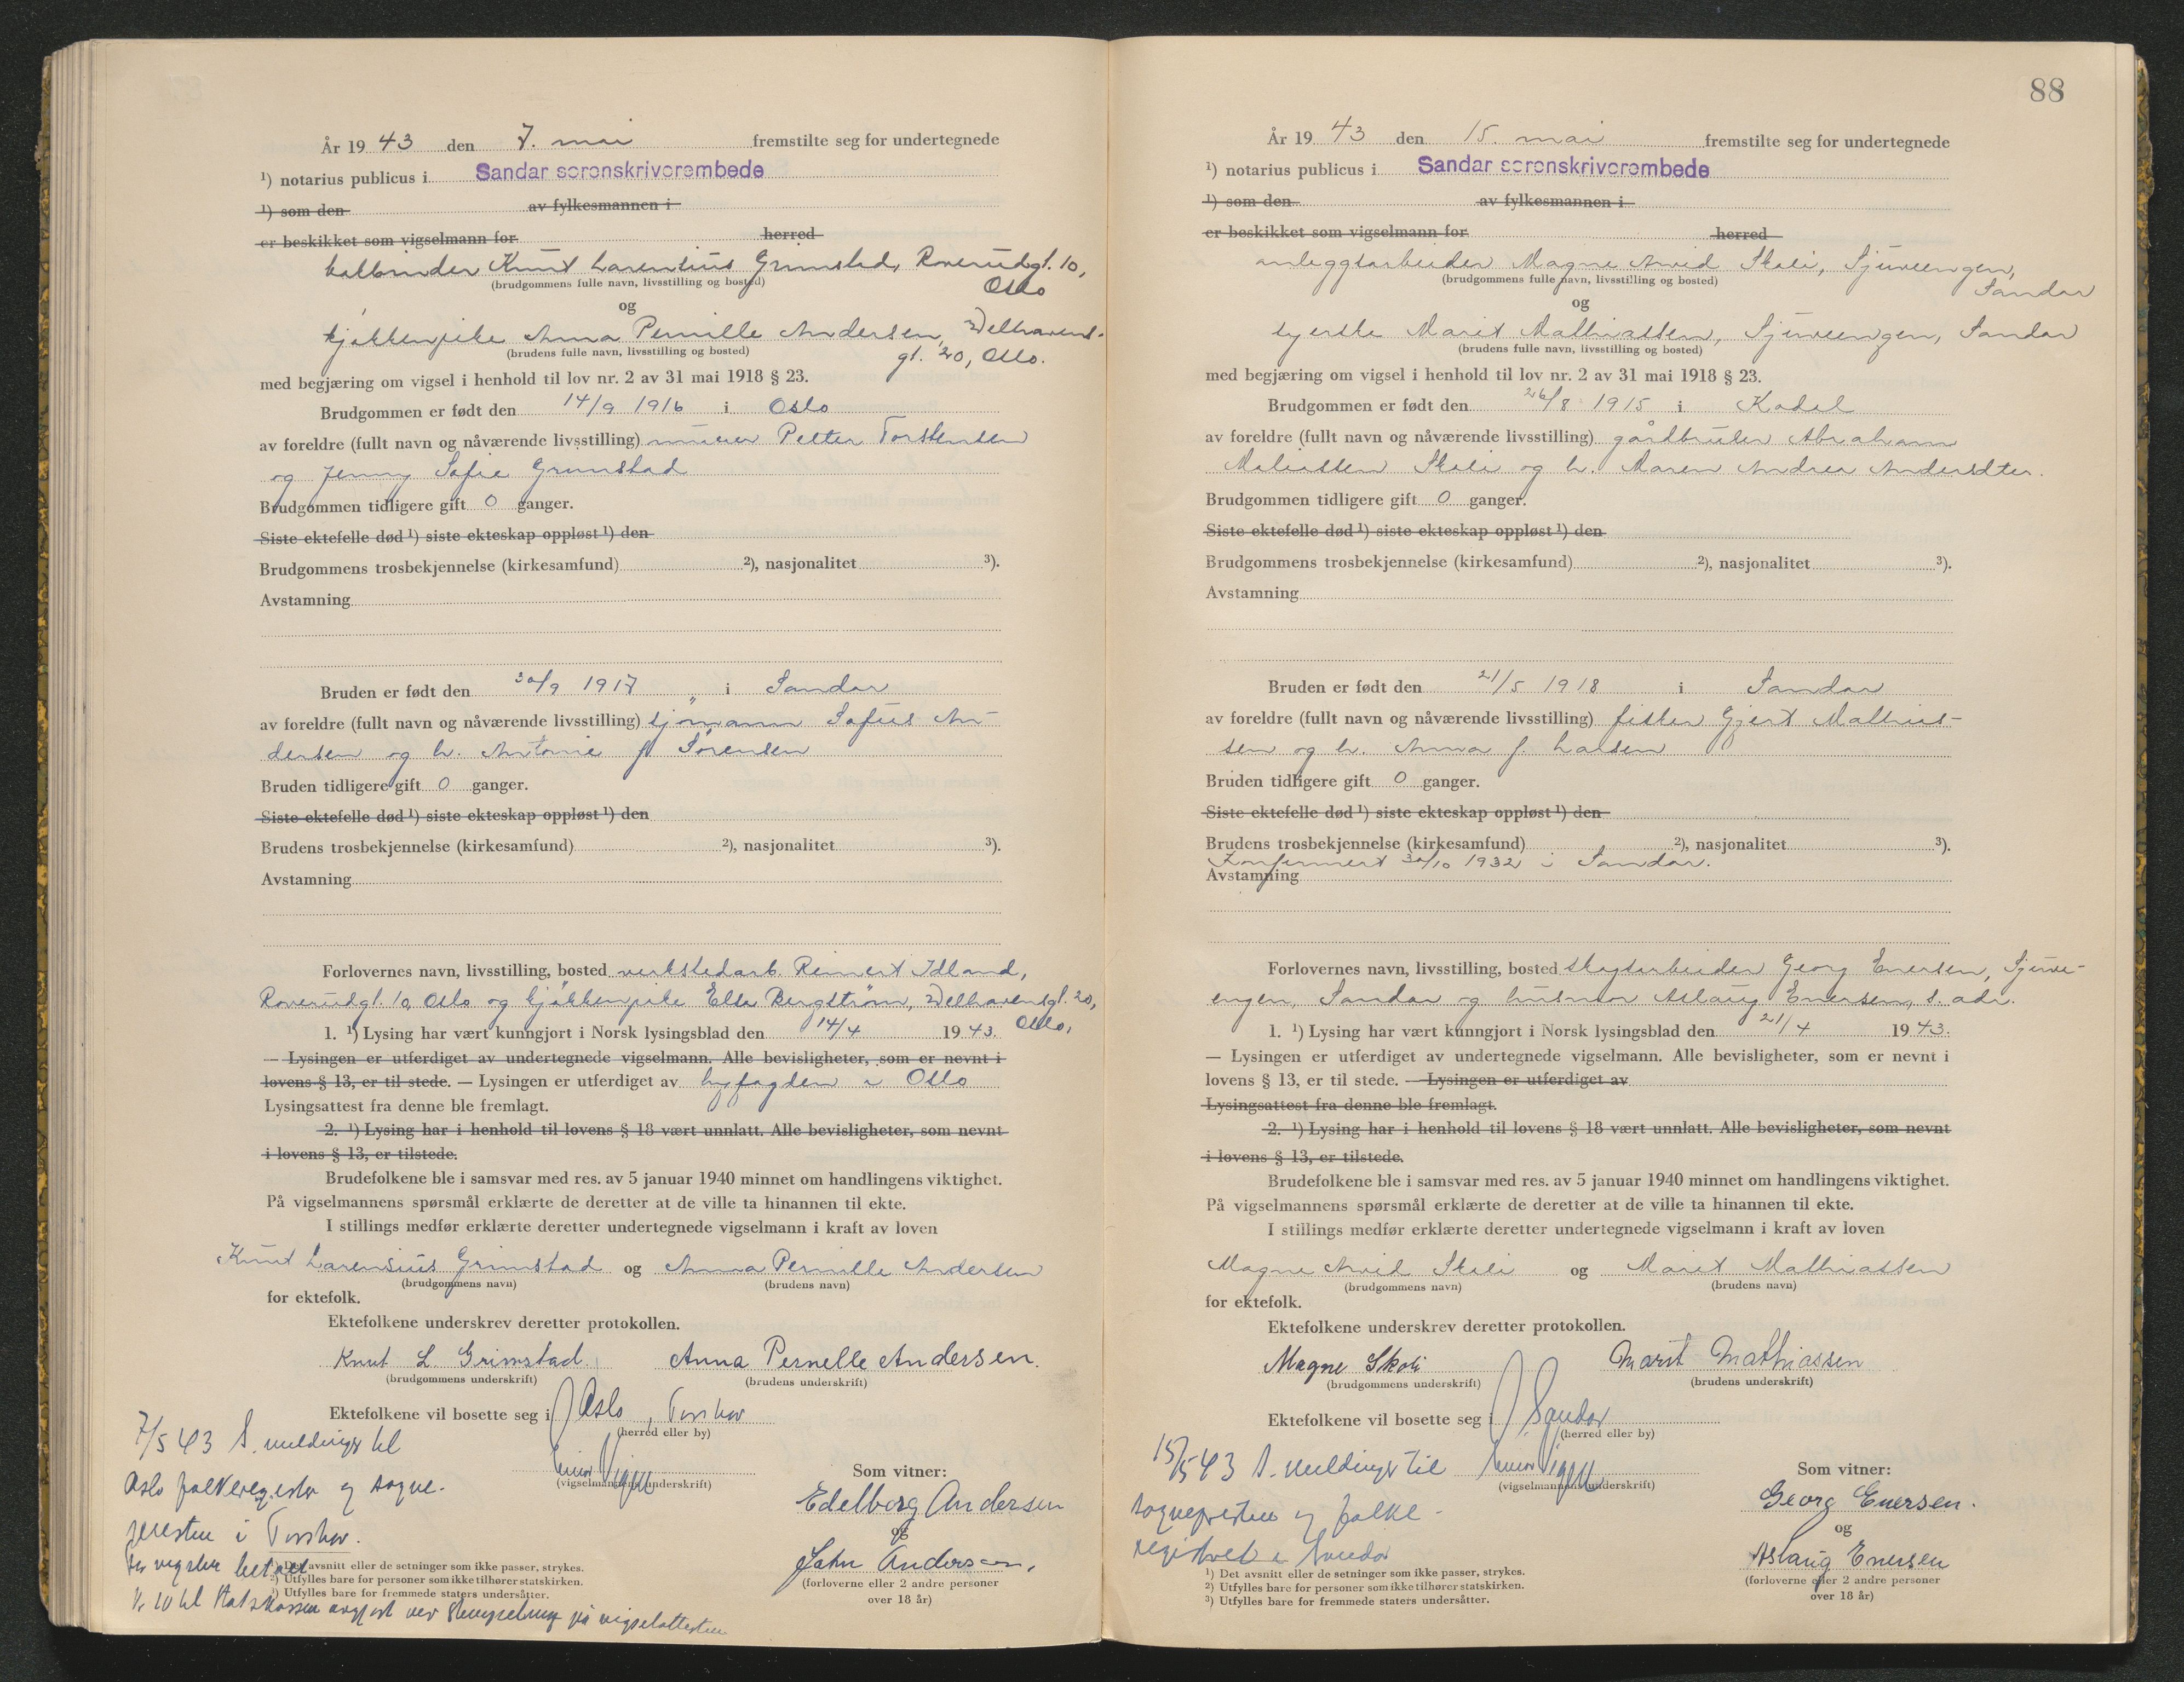 År 19 43 den 7. mai fremstilte seg for undertegnede
¹) notarius publicus i Sandar sorenskriverembede
¹) som den av fylkesmannen i
er beskikket som vigselmann for herred
Knut Larensius Grimstad, Roverudgt. 10,
(brudgommens fulle navn, livsstilling og bosted)
Oslo
og
kjøkkenpike Anna Pernille Andersen, Welhavens-
(brudens fulle navn, livsstilling og bosted)
gt. 20, Oslo.
med begjæring om vigsel i henhold til lov nr. 2 av 31 mai 1918 § 23.
Brudgommen er født den 14/9 1916 i Oslo
av foreldre (fullt navn og nåværende livsstilling) murer Petter Torstensen
og Jenny Sofie Grimstad
Brudgommen tidligere gift 0 ganger.
Siste ektefelle død ¹) siste ekteskap oppløst ¹) den
Brudgommens trosbekjennelse (kirkesamfund) ²), nasjonalitet ³).
Avstamning
Bruden er født den 30/9 1917 i Sandar
av foreldre (fullt navn og nåværende livsstilling) sjømann Sofus An-
dersen og h. Antonie f. Sørensen
Bruden tidligere gift 0 ganger.
Siste ektefelle død ¹) siste ekteskap oppløst ¹) den
Brudens trosbekjennelse (kirkesamfund) ²), nasjonalitet ³).
Avstamning
Forlovernes navn, livsstilling, bosted verkstedarb. Reinert Idland,
Roverudgt. 10, Oslo og kjøkkenpike Ella Bergstrøm, Welhavensgt. 20,
Oslo.
1. ¹) Lysing har vært kunngjort i Norsk lysingsblad den 14/4 1943.
— Lysingen er utferdiget av undertegnede vigselmann. Alle bevisligheter, som er nevnt i
lovens § 13, er til stede. — Lysingen er utferdiget av byfogden i Oslo
Lysingsattest fra denne ble fremlagt.
2. ¹) Lysing har i henhold til lovens § 18 vært unnlatt. Alle bevisligheter, som nevnt
i lovens § 13, er tilstede.
Brudefolkene ble i samsvar med res. av 5 januar 1940 minnet om handlingens viktighet.
På vigselmannens spørsmål erklærte de deretter at de ville ta hinannen til ekte.
I stillings medfør erklærte deretter undertegnede vigselmann i kraft av loven
Knut Larensius Grimstad og Anna Pernille Andersen
(brudgommens navn) (brudens navn)
for ektefolk.
Ektefolkene underskrev deretter protokollen.
Knut L Grimstad. Anna Pernelle Andersen.
(brudgommens underskrift) (brudens underskrift)
Ektefolkene vil bosette seg i Oslo, Torshov
(herred eller by)
(vigselmannens underskrift)
Som vitner:
Edelborg Andersen
og
John Andersen.
(forloverne eller 2 andre personer
over 18 år)
7/5 43 S. meldinger til
Oslo folkeregister og sogne-
presten i Torshov.
For vigselen betalt
til Statskassen avgjort ved Stempeling på vigselattesten
¹) Det avsnitt eller de setninger som ikke passer, strykes.
²) Utfylles bare for personer som ikke tilhører statskirken.
³) Utfylles bare for fremmede staters undersåtter.
88
År 19 43 den 15. mai fremstilte seg for undertegnede
¹) notarius publicus i Sandar sorenskriverembede
¹) som den av fylkesmannen i
er beskikket som vigselmann for herred
anleggsarbeider Magne Arvid Skoli, Sjuveengen,
(brudgommens fulle navn, livsstilling og bosted)
Sandar
og
syerske Marit Mathiassen, Sjuveengen, Sandar
(brudens fulle navn, livsstilling og bosted)
med begjæring om vigsel i henhold til lov nr. 2 av 31 mai 1918 § 23.
Brudgommen er født den 26/8 1915 i Kodal
av foreldre (fullt navn og nåværende livsstilling) gårdbruker Abraham
Matiassen Skoli og h. Maren Andrea Andersdter.
Brudgommen tidligere gift 0 ganger.
Siste ektefelle død ¹) siste ekteskap oppløst ¹) den
Brudgommens trosbekjennelse (kirkesamfund) ²), nasjonalitet ³).
Avstamning
Bruden er født den 21/5 1918 i Sandar
av foreldre (fullt navn og nåværende livsstilling) fisker Gjert Mathias-
sen og h. Anna f. Larsen
Bruden tidligere gift 0 ganger.
Siste ektefelle død ¹) siste ekteskap oppløst ¹) den
Brudens trosbekjennelse (kirkesamfund) ²), nasjonalitet ³).
Konfirmert 30/10 1932 i Sandar.
Avstamning
Forlovernes navn, livsstilling, bosted skogsarbeider Georg Enersen, Sjuve-
engen, Sandar og husmor Aslaug Enersen, s. adr.
1. ¹) Lysing har vært kunngjort i Norsk lysingsblad den 21/4 1943.
— Lysingen er utferdiget av undertegnede vigselmann. Alle bevisligheter, som er nevnt i
lovens § 13, er til stede. — Lysingen er utferdiget av
Lysingsattest fra denne ble fremlagt.
2. ¹) Lysing har i henhold til lovens § 18 vært unnlatt. Alle bevisligheter, som nevnt
i lovens § 13, er tilstede.
Brudefolkene ble i samsvar med res. av 5 januar 1940 minnet om handlingens viktighet.
På vigselmannens spørsmål erklærte de deretter at de ville ta hinannen til ekte.
I stillings medfør erklærte deretter undertegnede vigselmann i kraft av loven
Magne Arvid Skoli og Marit Mathiassen
(brudgommens navn) (brudens navn)
for ektefolk.
Ektefolkene underskrev deretter protokollen.
Magne Skoli Marit Mathiassen
(brudgommens underskrift) (brudens underskrift)
Ektefolkene vil bosette seg i Sandar
(herred eller by)
(vigselmannens underskrift)
Som vitner:
Georg Enersen.
og
Aslaug Enersen
(forloverne eller 2 andre personer
over 18 år)
15/5 43 S. meldinger til
sognepresten og folke-
registret i Sandar
¹) Det avsnitt eller de setninger som ikke passer, strykes.
²) Utfylles bare for personer som ikke tilhører statskirken.
³) Utfylles bare for fremmede staters undersåtter.